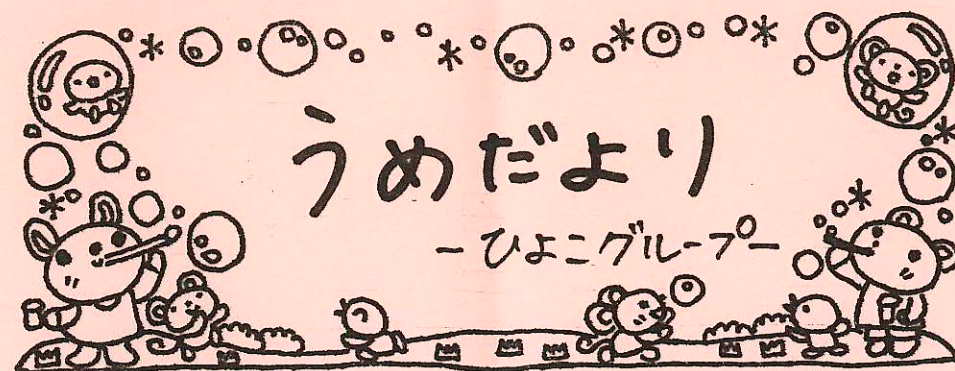 うめだより
-ひよこグループ-